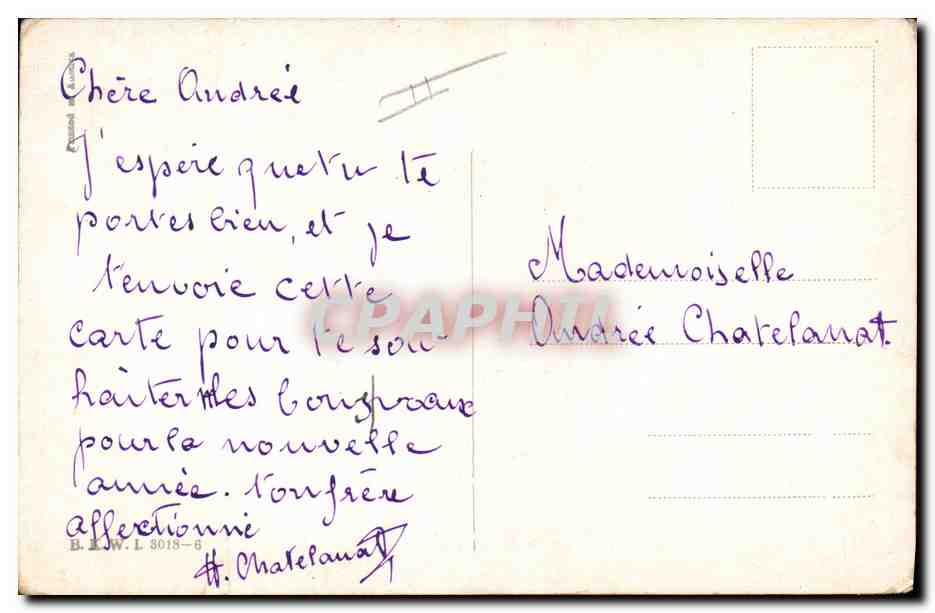 Chère Andrée
J'espère que tu te
portes bien, et je
t'envoie cette
carte pour te sou-
haiter mes bons vœux
pour la nouvelle
année. ton frère
affectionné
H. Chatelanat
B. K. W. I. 3018-6
Mademoiselle
Andrée Chatelanat
CPAPHIL